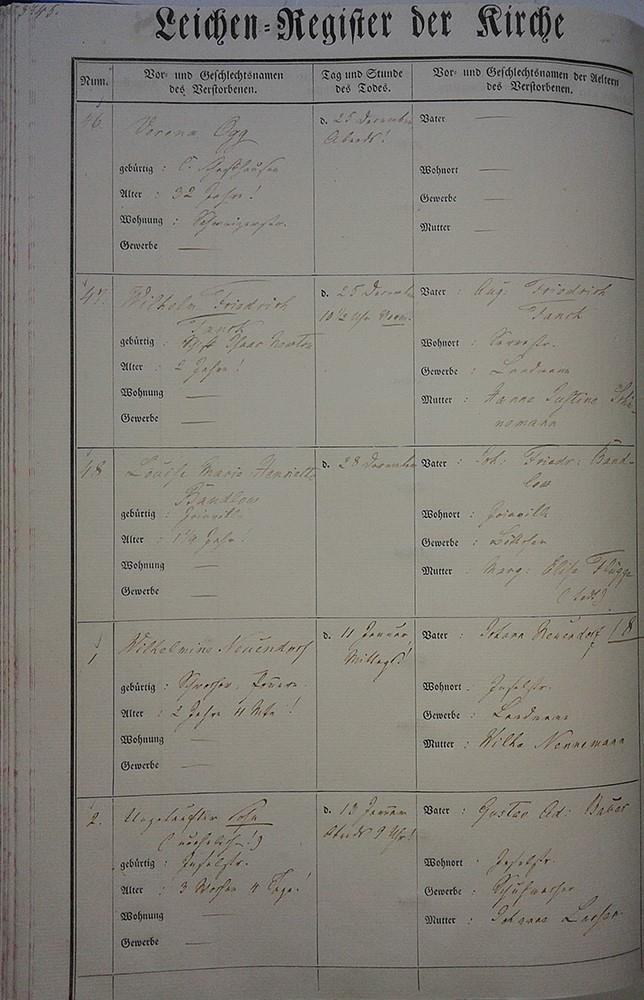 Leichen-Register der Kirche
Num.
Vor- und Geschlechtsnamen
des Verstorbenen.
Tag und Stunde
des Todes.
Vor- und Geschlechtsnamen der Aeltern
des Verstorbenen.
46
Verena Ogg
gebürtig :
Alter : 32 Jahre!
Wohnung : Schweizerstr.
Gewerbe
d. 25 December
Abends!
Vater
Wohnort
Gewerbe
Mutter
47.
Wilhelm Friedrich
Fanck
gebürtig : Isaac Newton
Alter : 2 Jahre!
Wohnung
Gewerbe
d. 25 December
10 ½ Uhr Vorm.
Vater : Aug. Friedrich
Fanck
Wohnort :
Gewerbe : Landmann
Mutter : Hanna Justine
nemann
48
Louise Maria Henriette
Bandlow
gebürtig : Joinville
Alter :
Wohnung
Gewerbe
d. 28 December
Vater : Joh: Friedr: Band-
low
Wohnort : Joinville
Gewerbe :
Mutter : Marg: Elise Flügge
(todt)
1
Wilhelmine Neuendorf
gebürtig :
Alter : 2 Jahre 11 Mte!
Wohnung
Gewerbe
d. 11 Januar,
Mittags!
Vater : Johann Neuendorf
Wohnort : Inselstr.
Gewerbe : Landmann
Mutter : Wilha Nonnemann
2.
Ungetaufter Sohn
gebürtig : Inselstr.
Alter : 3 Wochen 4 Tage!
Wohnung
Gewerbe
d. 13 Januar
Abends 9 Uhr!
Vater : Gustav Ad: Bauer
Wohnort : Inselstr.
Gewerbe : Schuhmacher
Mutter : Johanna